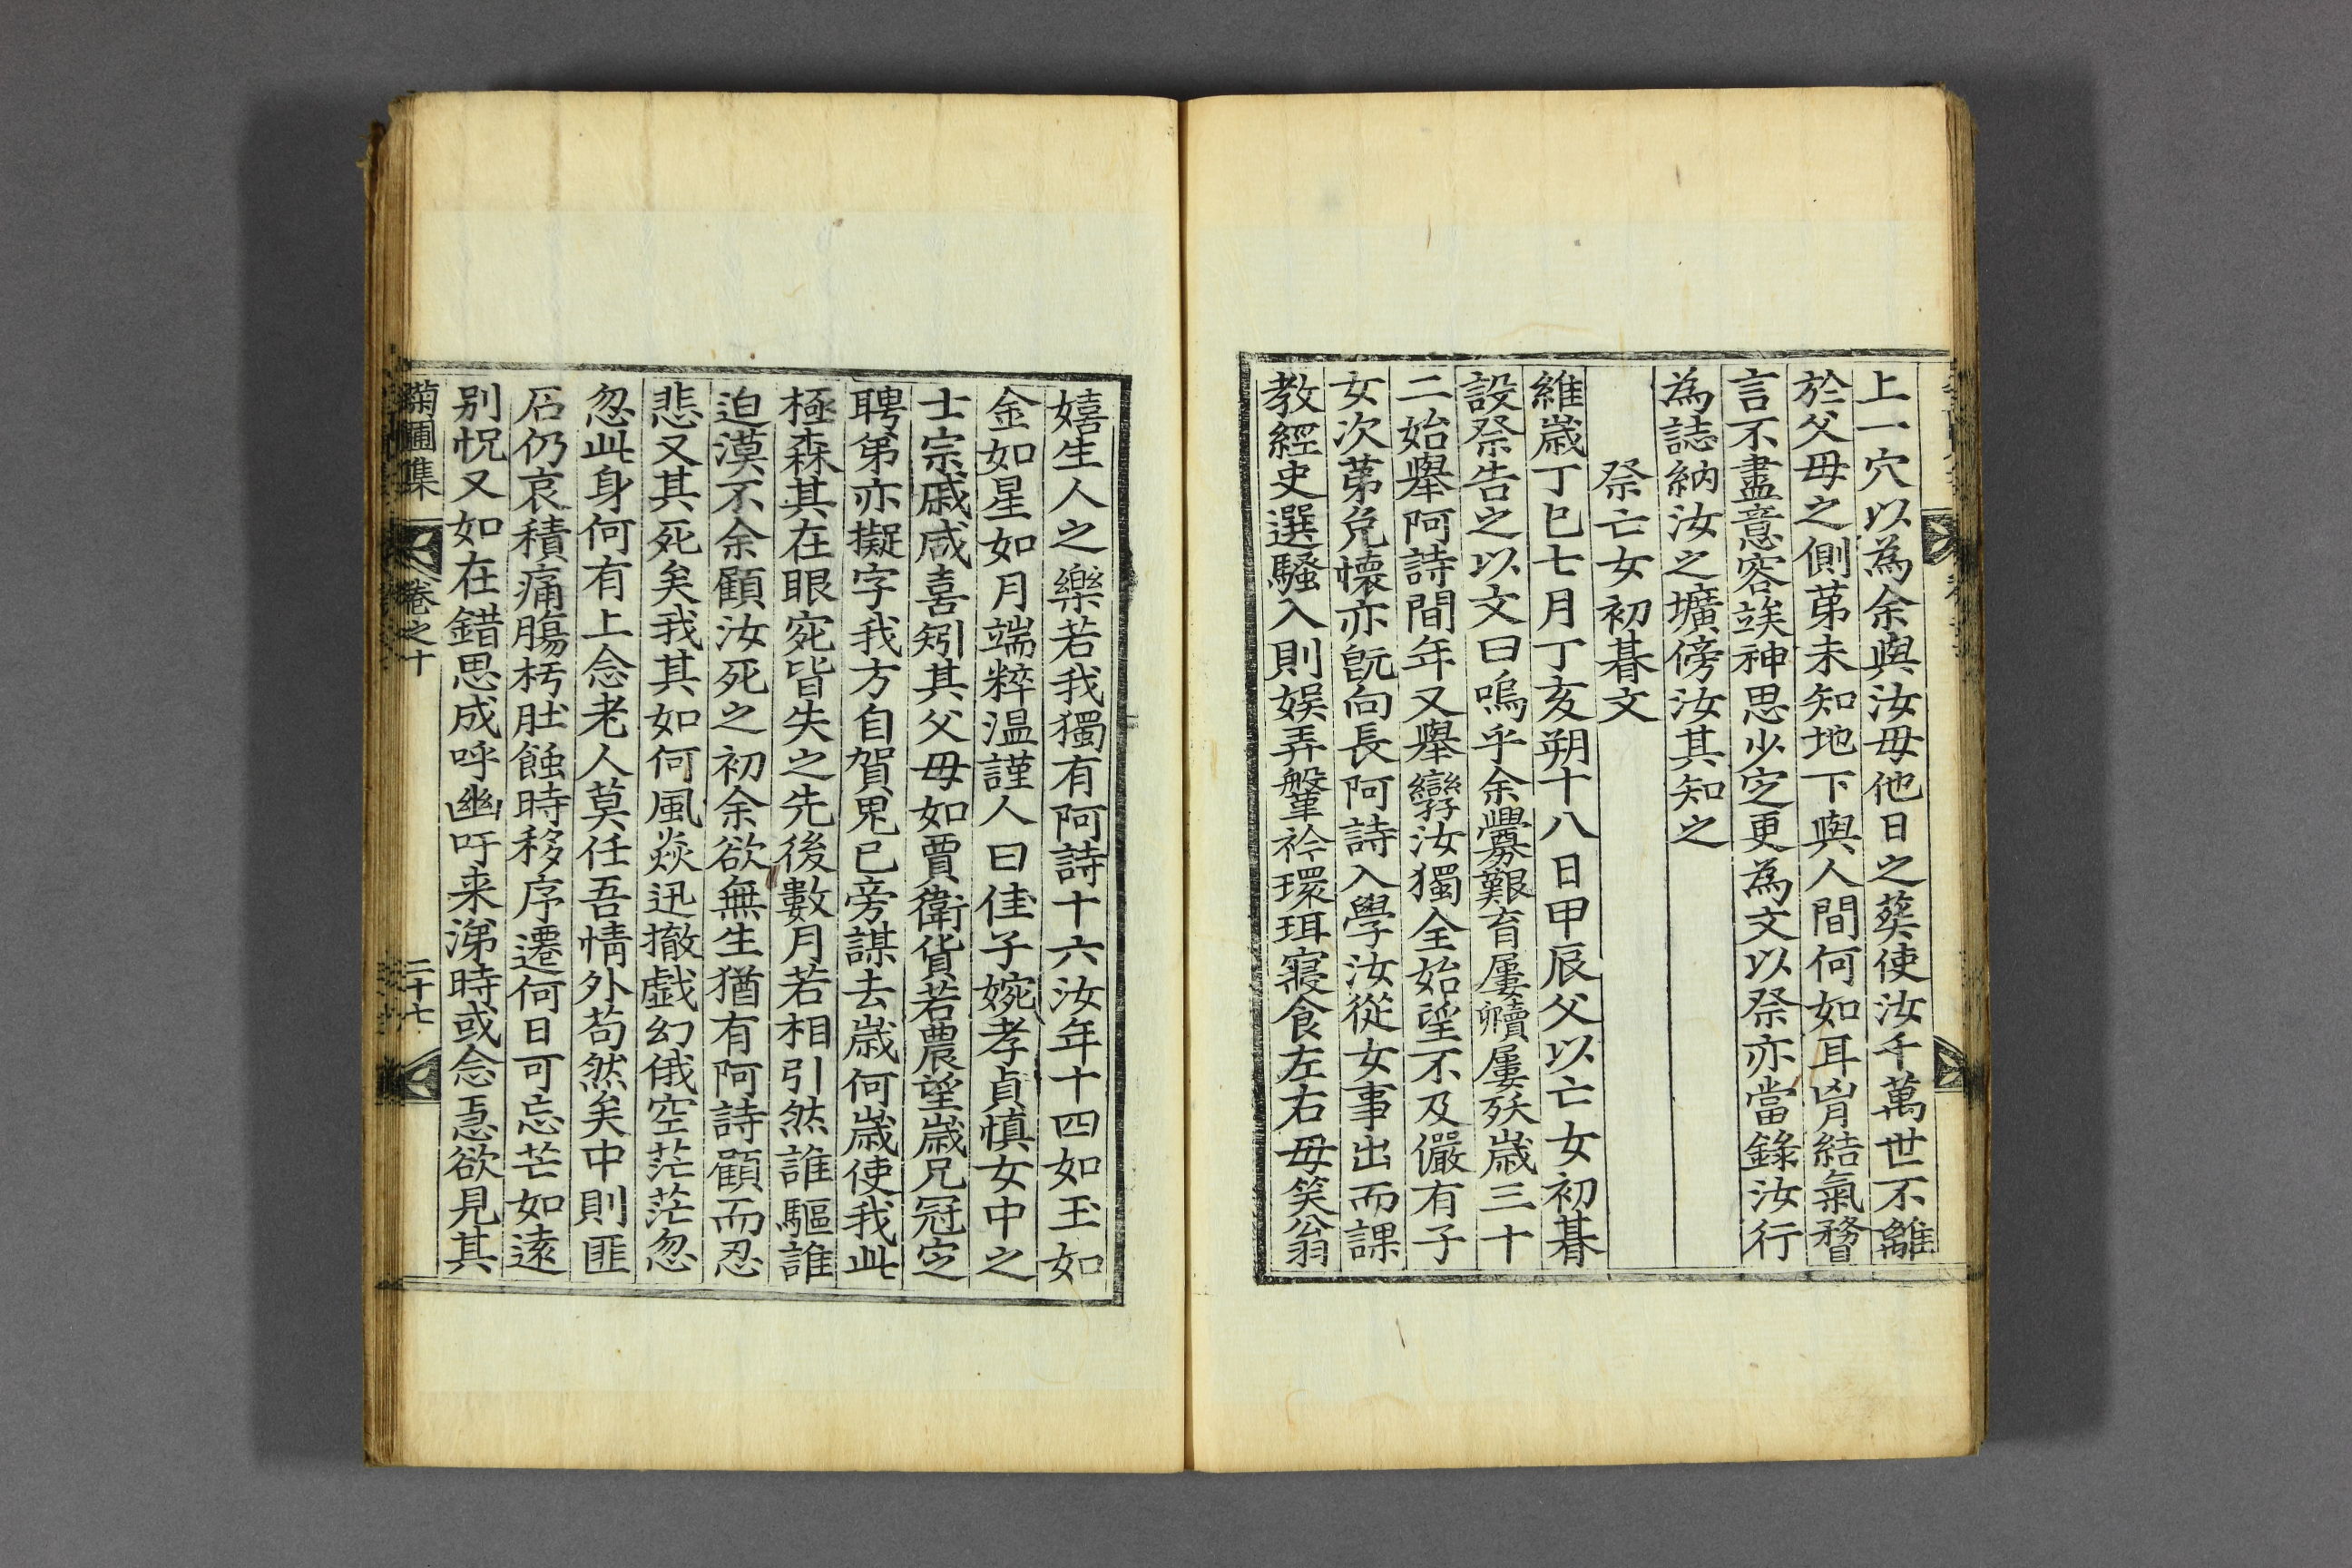 上一穴以為余與汝母他日之葬使汝千萬世不離
於父母之側苐未知地下與人間何如耳胷結氣瞀
言不盡意容竢神思少定更為文以祭亦當錄汝行
為誌納汝之壙傍汝其知之
祭亡女初朞文
維歲丁巳七月丁亥朔十八日甲辰父以亡女初朞
設祭告之以文曰嗚乎余釁募艱育屢殰屢殀歲三十
二始舉阿詩間年又舉孿汝獨全始望不及儼有子
女次苐免懷亦旣向長阿詩入學汝從女事出而課
教經史選騷入則娛弄鞶衿環珥寢食左右母笑翁
嬉生人之樂若我獨有阿詩十六汝年十四如玉如
金如星如月端粹温謹人曰佳子婉孝貞慎女中之
士宗戚咸喜矧其父母如賈衛貨若農望歲兄冠定
聘弟亦擬字我方自賀鬼已旁謀去歲何歲使我此
極森其在眼宛皆失之先後數月若相引然誰驅誰
迫漠不余顧汝死之初余欲無生猶有阿詩顧而忍
悲又其死矣我其如何風焱迅撤戲幻俄空茫茫忽
忽此身何有上念老人莫任吾情外苟然矣中則匪
石仍哀積痛膓朽肚蝕時移序遷何日可忘芒如遠
別怳又如在錯思成呼幽吁来涕時或念惡欲見其
蘜圃集 卷之十 二十七